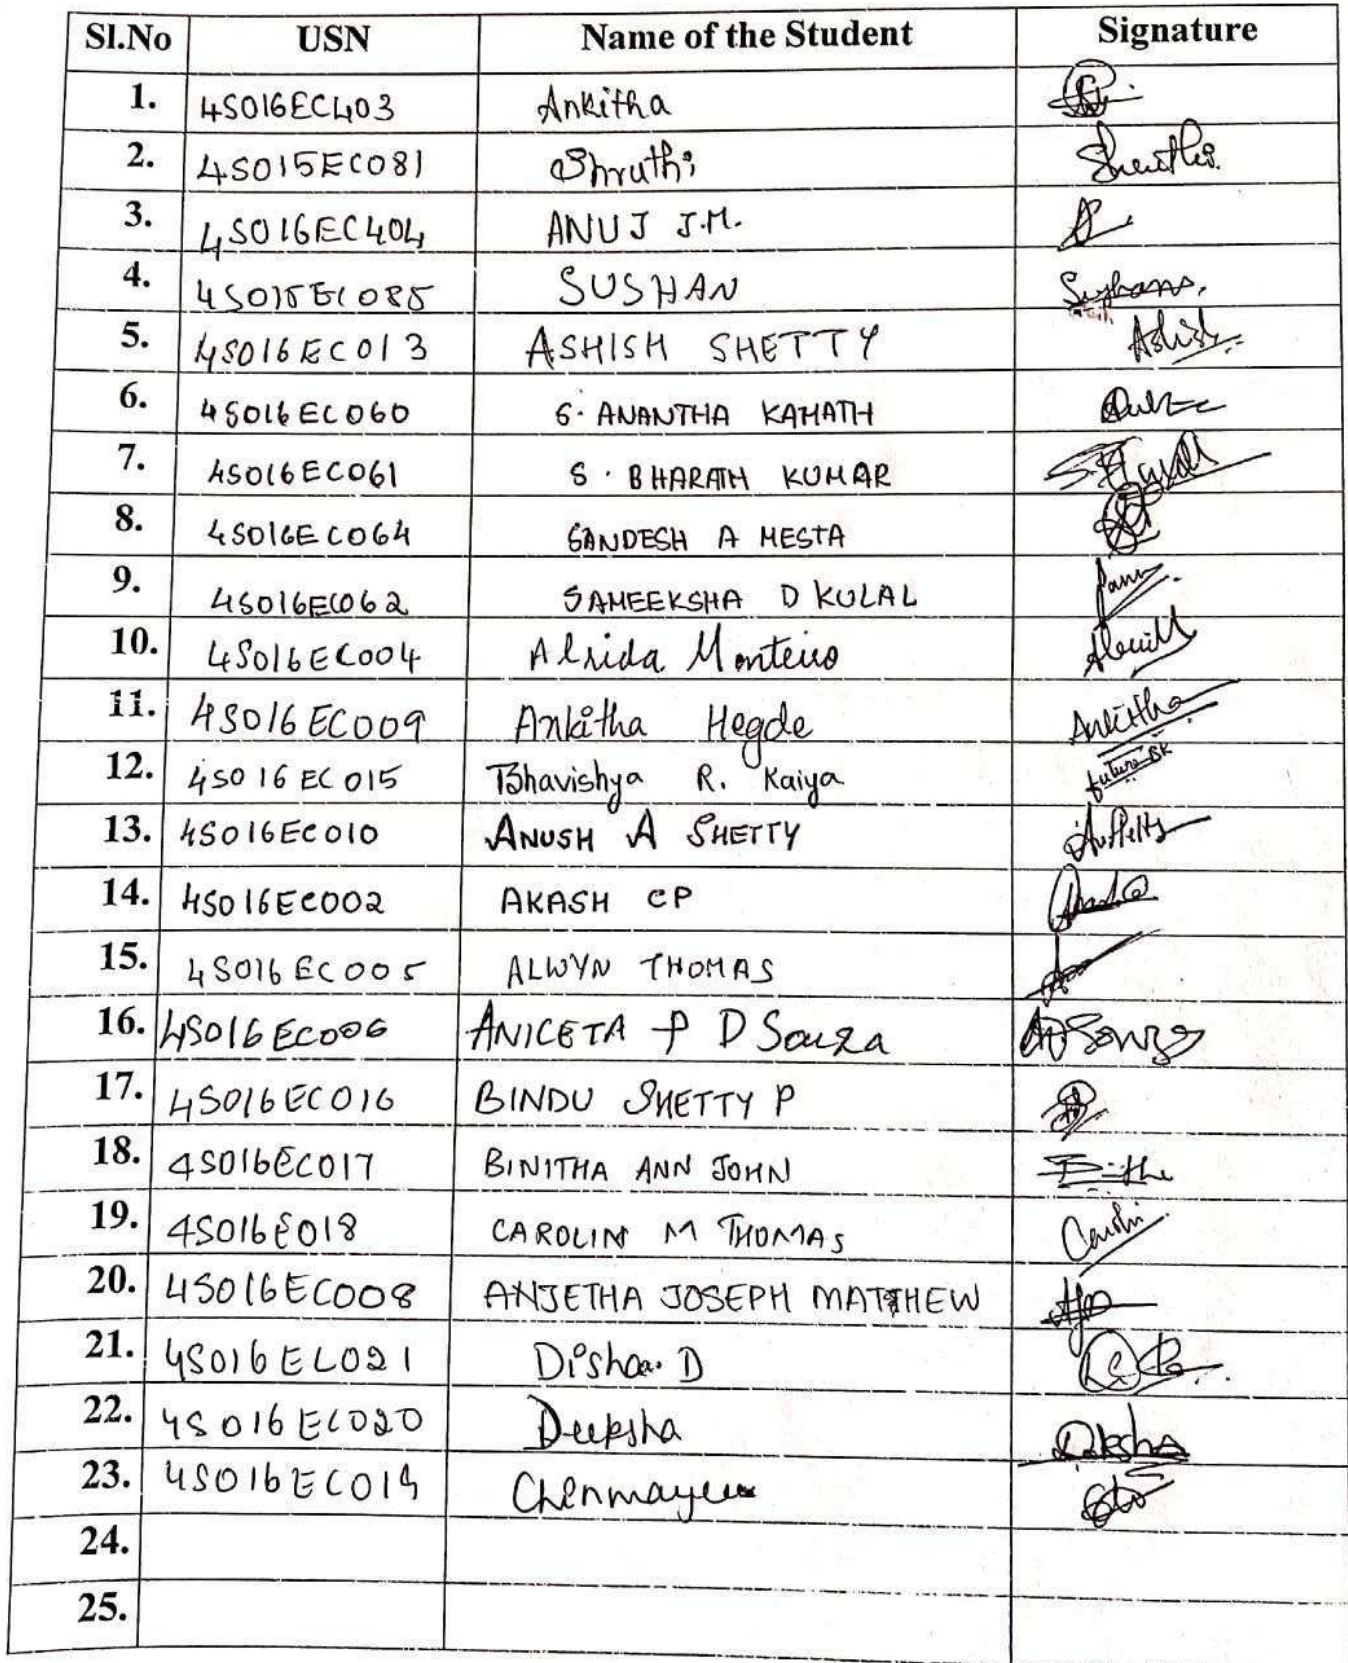 Sl.No USN Name of the Student Signature
1. 4SO16EC403 Ankitha
2. 4SO15EC081 Shruthi Shruthi.
3. 4SO16EC404 ANUJ J.M.
4. 4SO15EC085 SUSHAN
5. 4SO16EC013 ASHISH SHETTY Ashish
6. 4SO16EC060 S. ANANTHA KAMATH
7. 4SO16EC061 S. BHARATH KUMAR
8. 4SO16EC064 SANDESH A MESTA
9. 4SO16EC062 SAMEEKSHA D KULAL
10. 4SO16EC004 Alrida Monteiro
11. 4SO16EC009 Ankitha Hegde Ankitha
12. 4SO16EC015 Bhavishya R. Kaiya future BK
13. 4SO16EC010 ANUSH A SHETTY
14. 4SO16EC002 AKASH CP
15. 4SO16EC005 ALWYN THOMAS
16. 4SO16EC006 ANICETA P D Souza
17. 4SO16EC016 BINDU SHETTY P
18. 4SO16EC017 BINITHA ANN JOHN
19. 4SO16E018 CAROLIN M THOMAS
20. 4SO16EC008 ANJETHA JOSEPH MATTHEW
21. 4SO16EC021 Disha D
22. 4SO16EC020 Deeksha
23. 4SO16EC019 Chinmayee
24.
25.